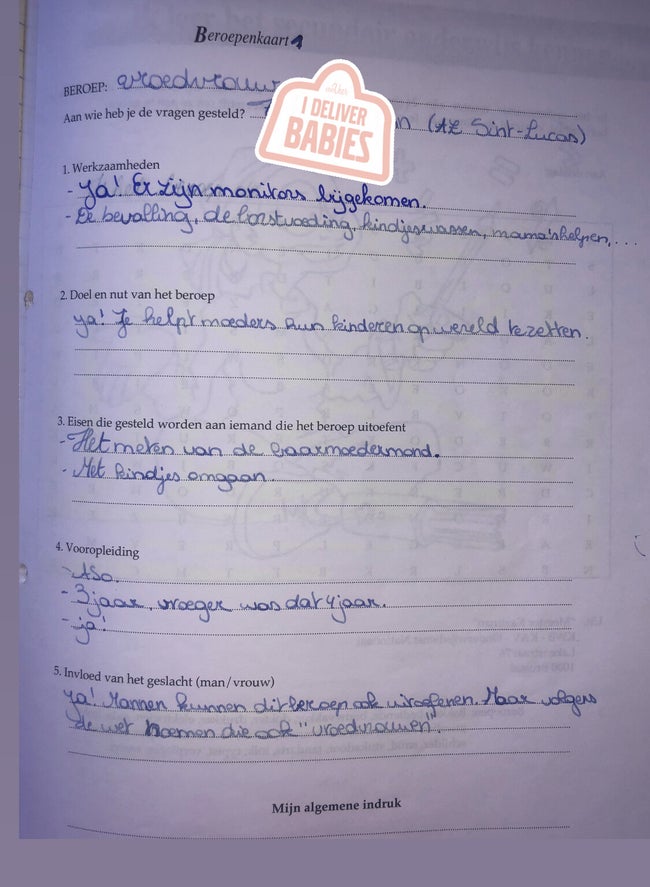 Beroepenkaart 1
BEROEP: vroedvrouw
Aan wie heb je de vragen gesteld? (AZ Sint-Lucas)
I DELIVER
BABIES
1. Werkzaamheden
- Ja! Er zijn monitors bijgekomen.
- De bevalling, de borstvoeding, kindjes wassen, mama's helpen, ...
2. Doel en nut van het beroep
ja! Je helpt moeders hun kinderen op wereld te zetten.
3. Eisen die gesteld worden aan iemand die het beroep uitoefent
- Het meten van de baarmoedermond.
- Met kindjes omgaan.
4. Vooropleiding
- ASO.
- 3 jaar, vroeger was dat 4 jaar.
- ja!
5. Invloed van het geslacht (man/vrouw)
Ja! Mannen kunnen dit beroep ook uitoefenen. Maar volgens
de wet noemen die ook "vroedvrouwen".
Mijn algemene indruk